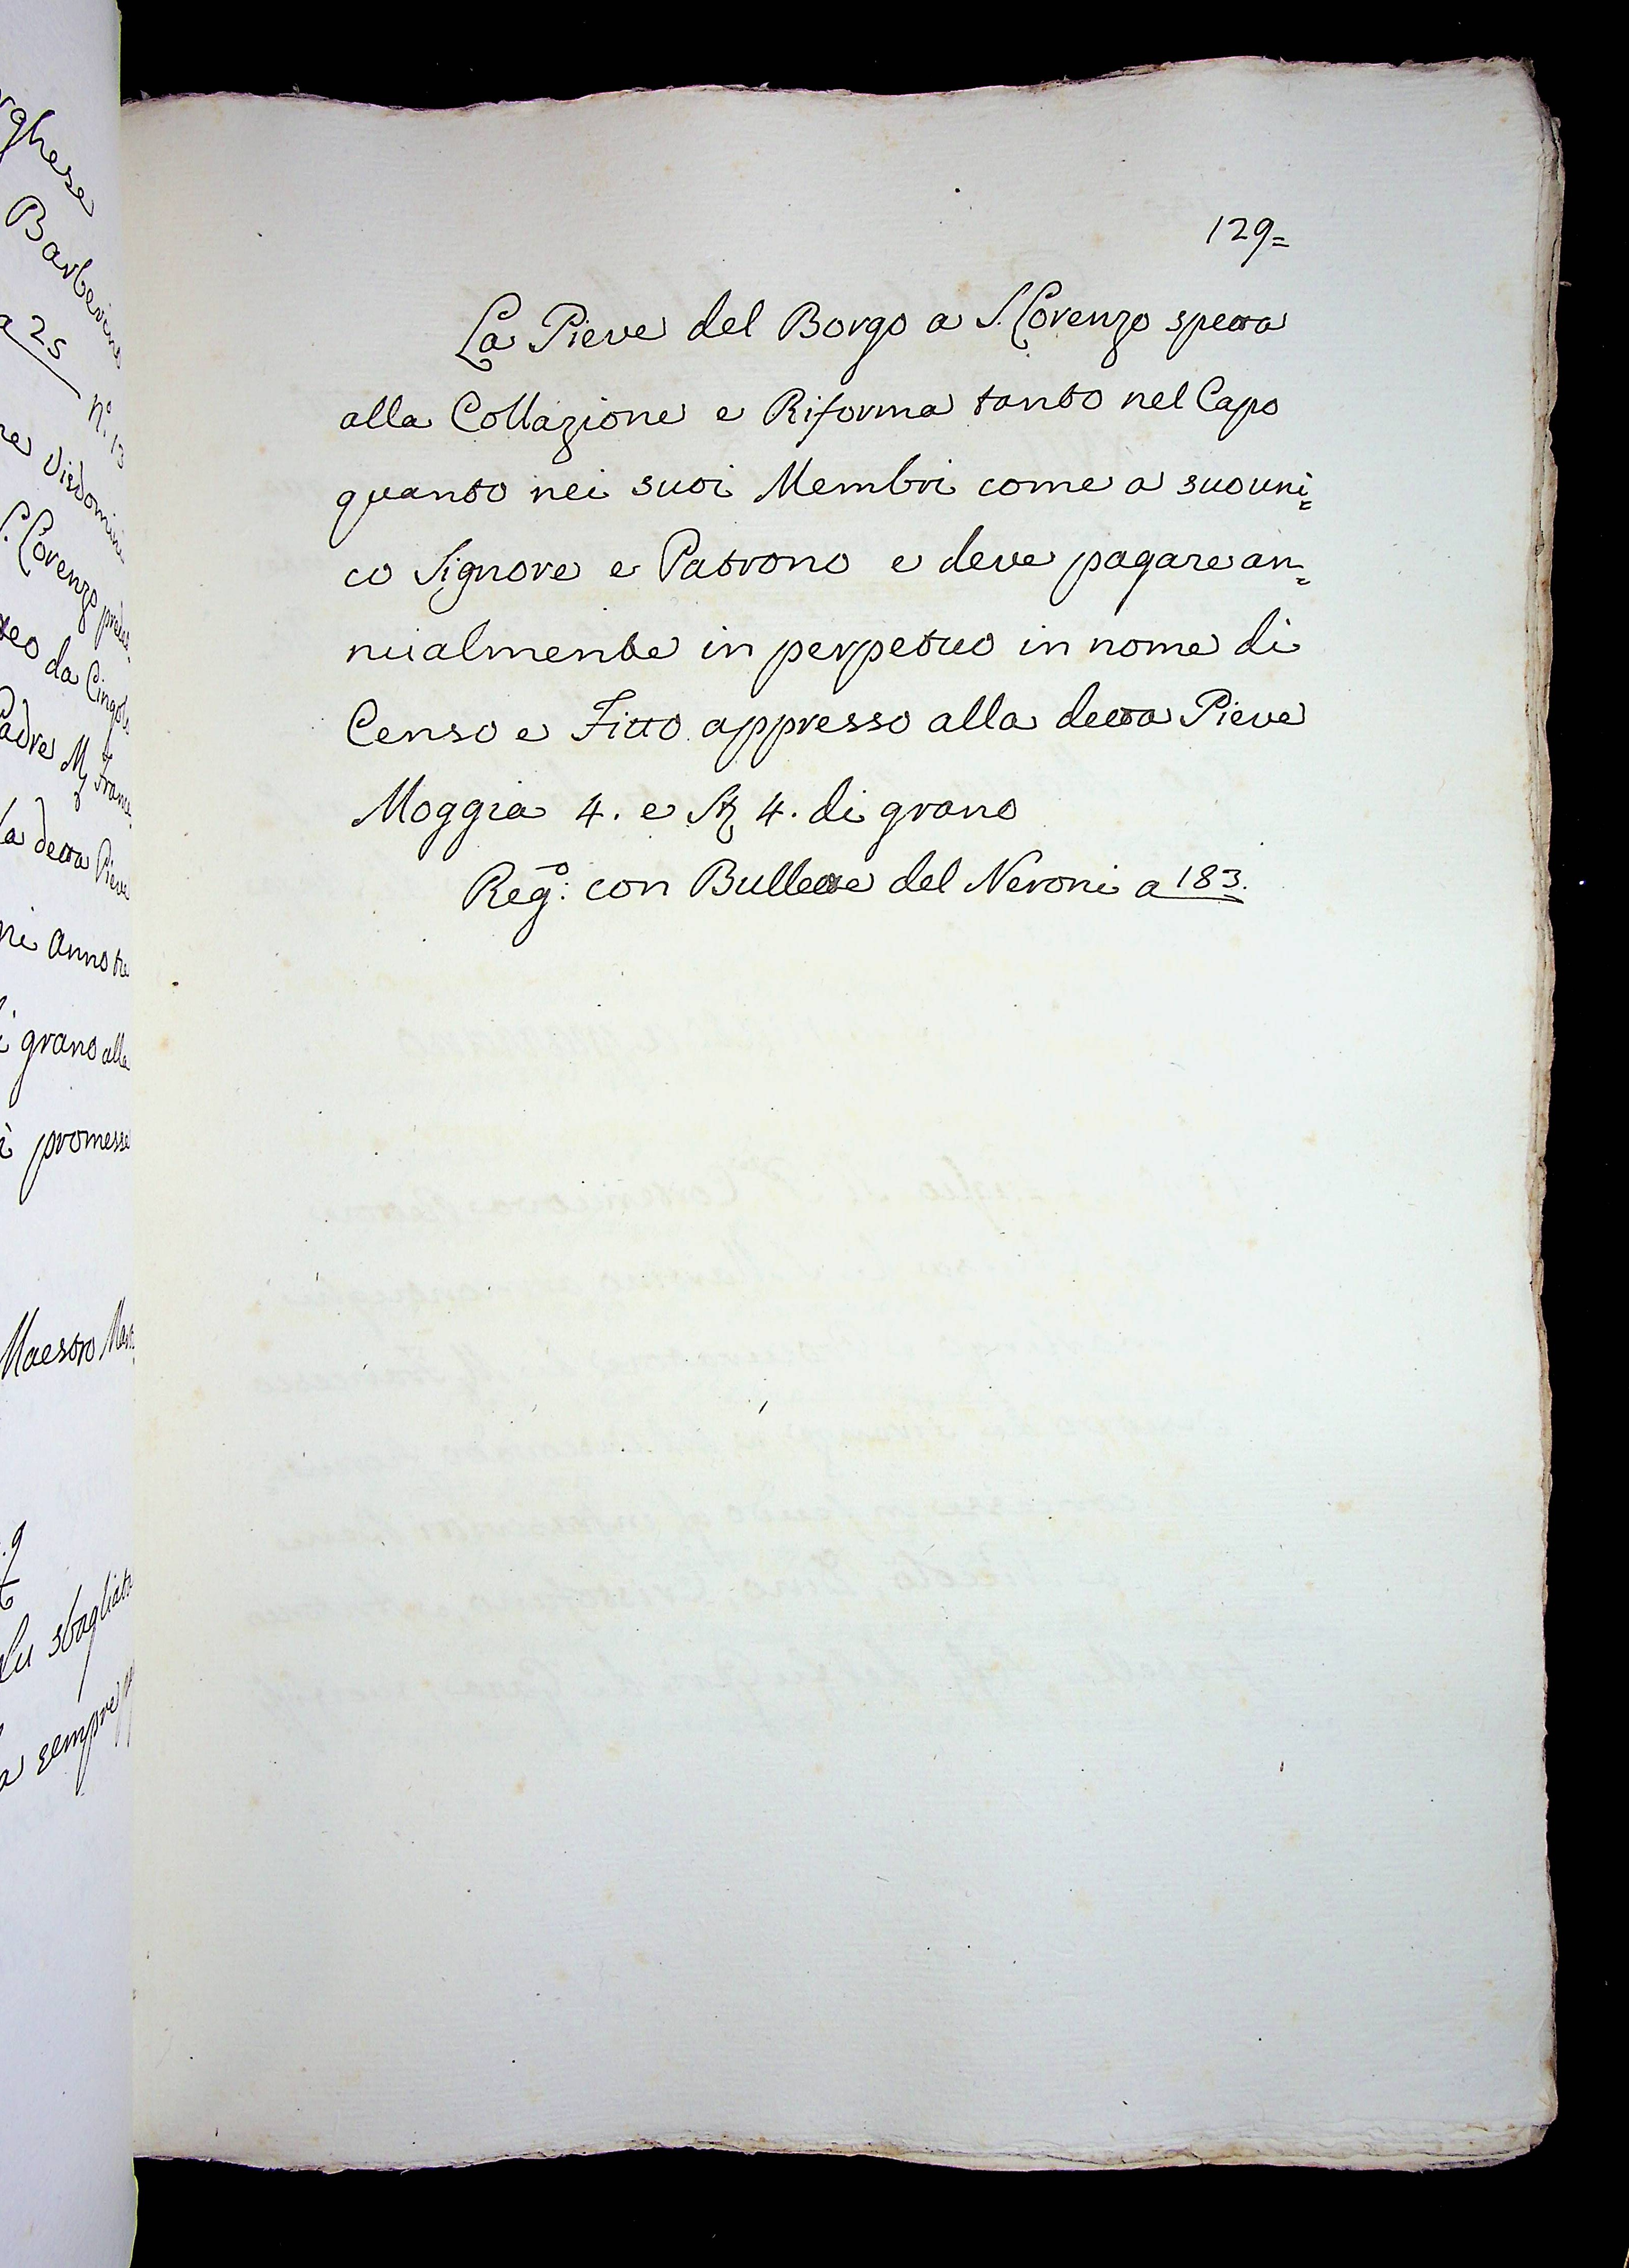 129=
La Pieve del Borgo a S. Lorenzo spetta
alla Collazione e Riforma tanto nel Capo
quanto nei suoi Membri come a suo uni=
co Signore e Patrono e deve pagare an=
nualmente in perpetuo in nome di
Censo e Fitto appresso alla detta Pieve
Moggia 4. e St 4. di grano
Reg:o con Bullette del Neroni a 183.
rghese
Barberino
a 25
n.o 13
Visdomini
S. Lorenzo
da Cingoli
M
la detta Pieve
anno tre
grano alla
promesse
Maestro
sbagliato
sempre